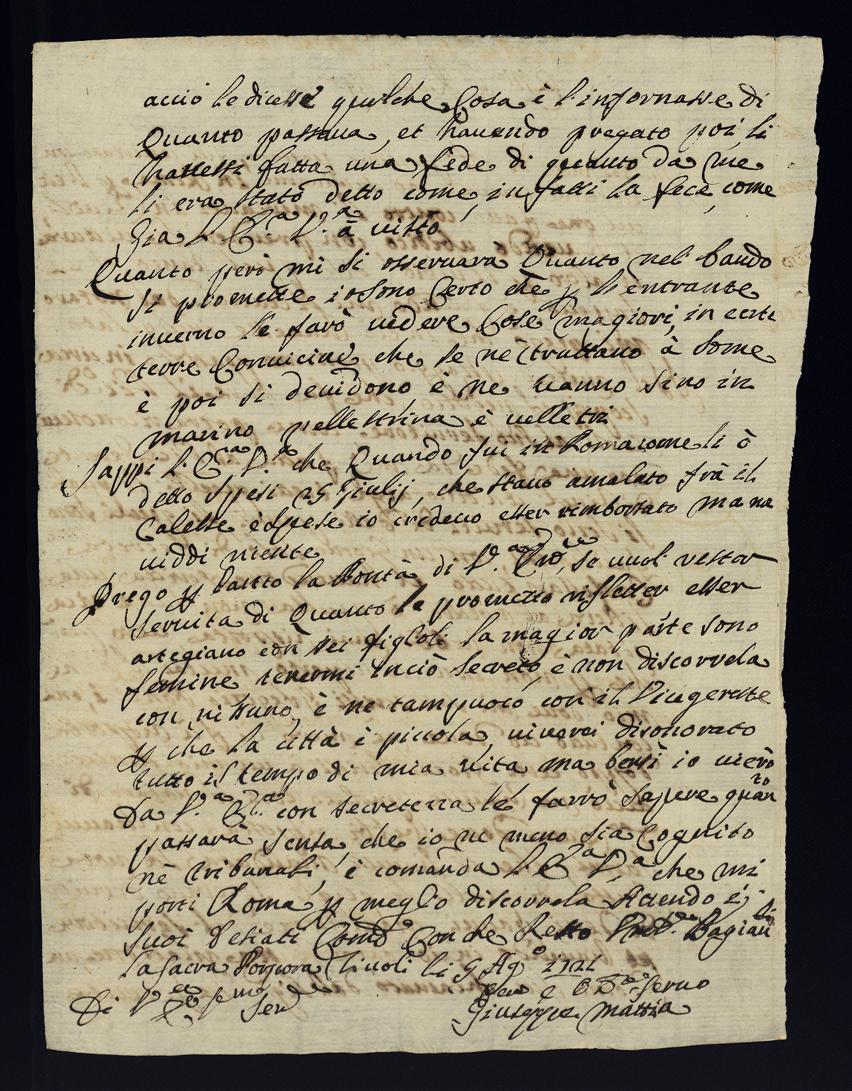 acciò le dicesse qualche Cosa è l'infornasse di
Quanto passava, et havendo pregato poi li
havessi fatta una fede di quanto da me
li era stato detto come, in fatti la fece, come
Gia l'E.ª V.ª à visto
Quanto però mi si osservarà Quanto nel bando
si promette io sono Certo che p l'entrante
inverno le farò vedere Cose magiori, in certe
terre Convicine che se ne trattano à some
è poi si devidono è ne vanno sino in
marino pellestrina è velletri
Sappi l'E.ª V.ª che Quando fui in Roma come li ò
detto spesi 25 Giulij, che stavo amalato frà il
Calesse è spese io credevo esser rimborsato ma na
viddi niente
Prego p tanto la Bontà di V.ª se vuol restar
servita di Quanto le prometto rifletter esser
artegiano con sei figloli la magior parte sono
femine tenermi in ciò secreto, è non discorrela
con nissuno, è ne tampuoco con il Vicegerente
p che la città è piccola viverei disonorato
tutto il tempo di mia vita ma bensì io
Da V.ª E.ª con secretezza le farrò sapere quan.to
passarà senza, che io ne meno sia Cognito
nè tribunali, è comanda l'E.ª V.ª che mi
porti Roma, p meglio discorrela Attendo i
suoi Pesiati Com.di Con che Resto
la Sacra Porpora Tivoli li 9 Ag.º 1721
Di V.ª Serv
Servo
Giuseppe Mattia